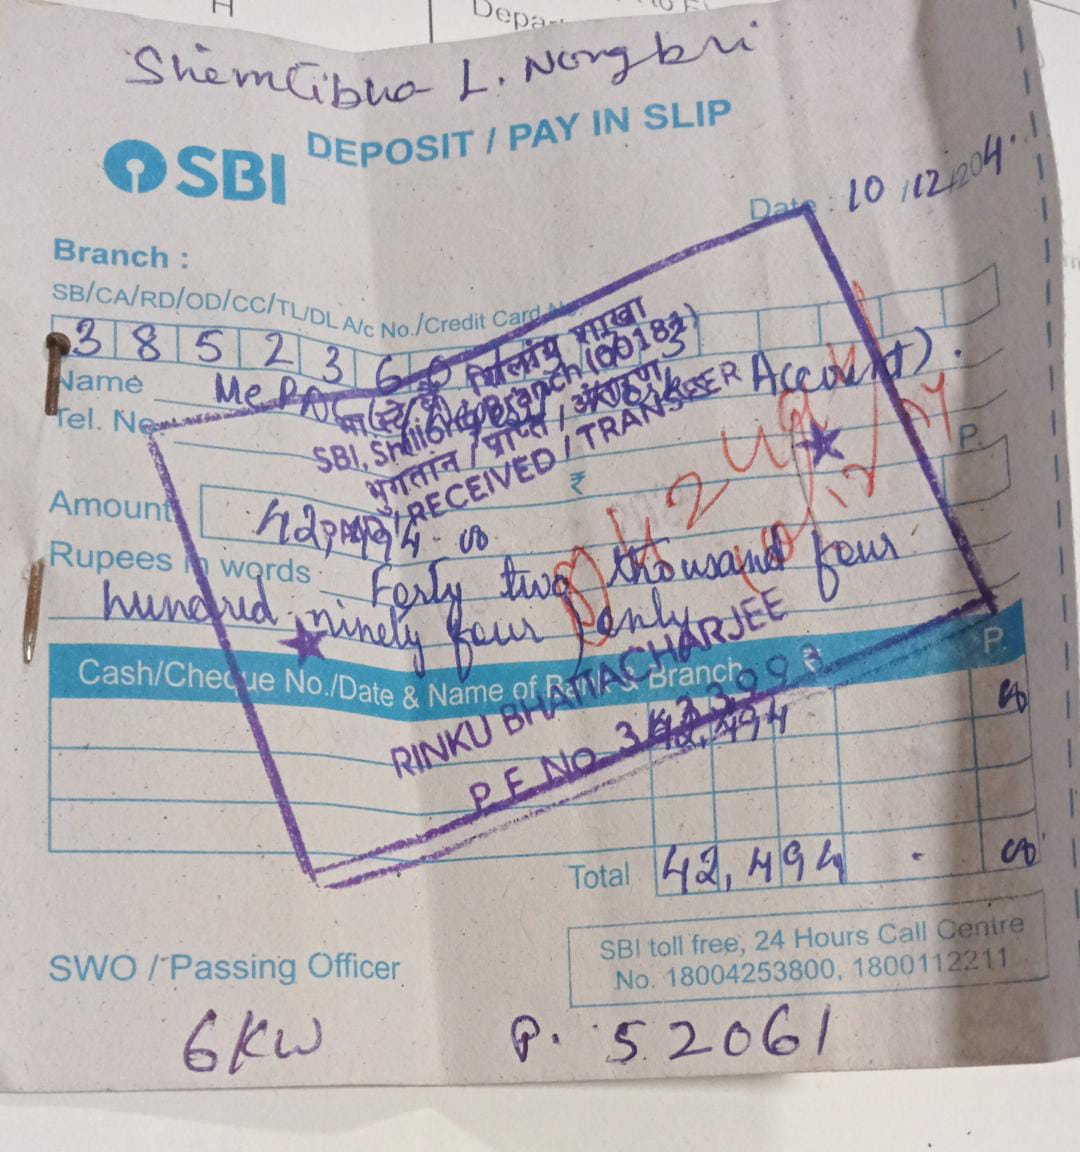 H
Depar
Shemlibha L. Nongbri
SBI
DEPOSIT / PAY IN SLIP
Date : 10/12/204
Branch :
SB/CA/RD/OD/CC/TL/DL A/c No./Credit Card
3 8 5 2 3 6 0
Name
Account).
SBI, Shillong Branch (00183)
Tel. No
भुगतान / प्राप्त / अंतरण
RECEIVED / TRANSFER
P.
₹
Amount 42,494.00
Rupees in words Forty two thousand four
hundred ninety four only
RINKU BHATTACHARJEE
Cash/Cheque No./Date & Name of Bank & Branch ₹ P.
P.F. No.
42,494 00
Total 42,494 . 00
SWO / Passing Officer
SBI toll free, 24 Hours Call Centre
No. 18004253800, 1800112211
6KW P. 52061